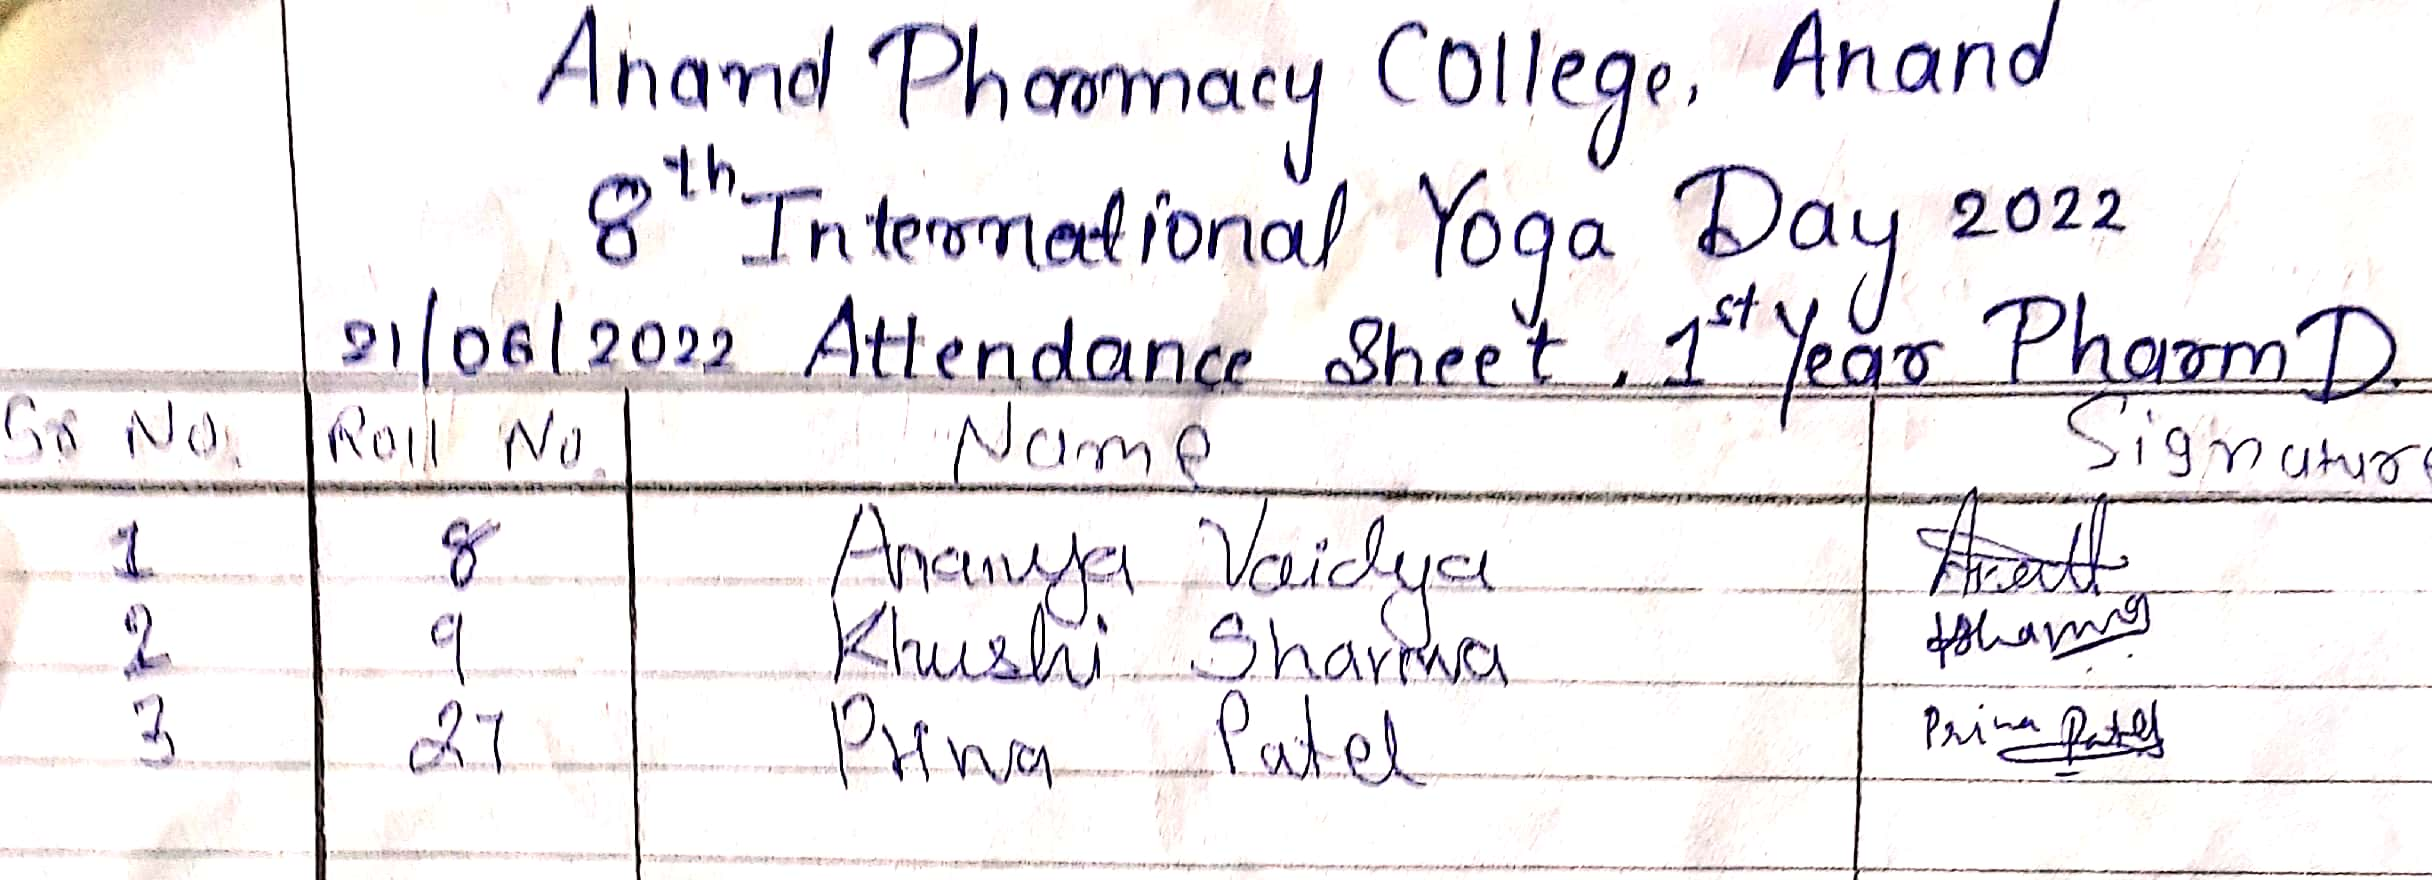 Anand Pharmacy College, Anand
8th International Yoga Day 2022
21/06/2022 Attendance Sheet, 1st Year Pharm D.
Sr No. Roll No. Name Signature
1 8 Ananya Vaidya
2 9 Khushi Sharma
3 27 Prina Patel Prina Patel